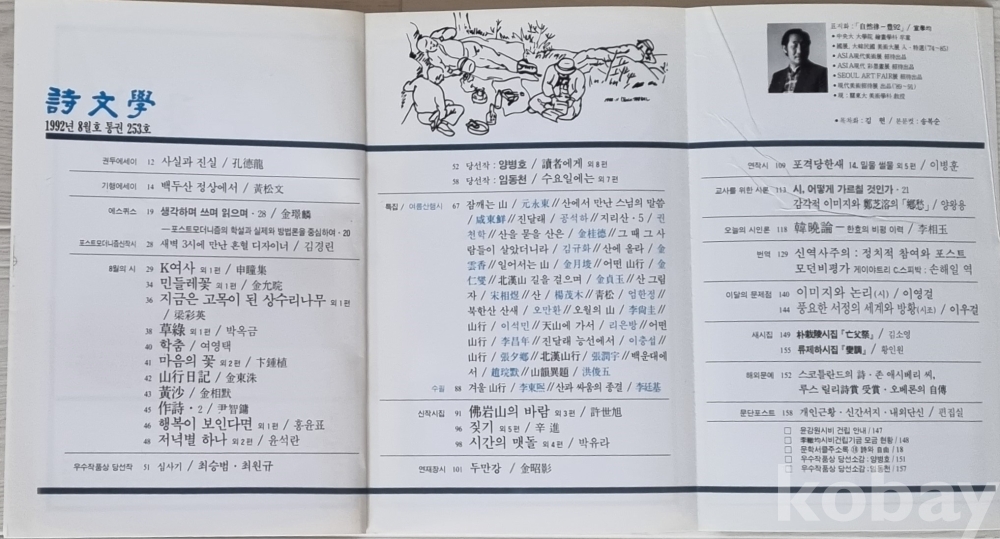 詩文學
1992년 8월호 통권 253호
권두에세이 12 사실과 진실 / 孔德龍
기행에세이 14 백두산 정상에서 / 黃松文
에스퀴스 19 생각하며 쓰며 읽으며·28 / 金璟麟
―포스트모더니즘의 학설과 실제와 방법론을 중심하여·20
포스트모더니즘신작시 28 새벽 3시에 만난 혼혈 디자이너 / 김경린
8월의 시 29 K여사 외1편 / 申瞳集
34 민들레꽃 외1편 / 金允晥
36 지금은 고목이 된 상수리나무 외1편
/ 梁彩英
38 草綠 외2편 / 박옥금
40 학춤 / 여영택
41 마음의 꽃 외2편 / 卞鍾植
42 山行日記 / 金東洙
43 黃沙 / 金相默
45 作詩·2 / 尹智鏞
46 행복이 보인다면 외1편 / 홍윤표
48 저녁별 하나 외2편 / 윤석란
우수작품상 당선작 51 심사기 / 최승범·최원규
52 당선작: 양병호 / 讀者에게 외8편
58 당선작: 임동천 / 수요일에는 외7편
특집 / 여름산행시 67 잠깨는 山 / 元永東∥산에서 만난 스님의 말씀
/ 咸東鮮∥진달래 / 공석하∥지리산·5 / 권
천학∥산을 묻을 산은 / 金桂德∥그 때 그 사
람들이 살았더니라 / 김규화∥산에 올라 / 金
雲香∥일어서는 山 / 金月埈∥어떤 山行 / 金
仁燮∥北漢山 길을 걸으며 / 金貞玉∥산 그림
자 / 宋相煜∥산 / 楊茂木∥靑松 / 엄한정∥
북한산 산새 / 오만환∥오월의 山 / 李尙圭∥
山行 / 이석민∥天山에 가서 / 리은방∥어떤
山行 / 李昌年∥진달래 능선에서 / 이충섭∥
山行 / 張夕鄕∥北漢山行 / 張潤宇∥백운대에
서 / 趙垸默∥山韻異題 / 洪俊五
수필 88 겨울 山行 / 李東熙∥산과 싸움의 종결 / 李廷基
신작시집 91 佛岩山의 바람 외3편 / 許世旭
96 짖기 외5편 / 辛進
98 시간의 맷돌 외4편 / 박유라
연재장시 101 두만강 / 金昭影
표지화:「自然律―豊92」/ 황
•中央大 大學院 繪畵學科 卒業
•國展, 大韓民國 美術大展 入·特選('74~85)
•ASIA現代美術展 招待出品
•ASIA現代 彩墨畵展 招待出品
•SEOUL ART FAIR展 招待出品
•現代美術招待展 出品('89~91)
•現:關東大 美術學科 敎授
•목차화: 김원 / 본문컷: 송복순
연작시 109 포격당한새 14. 밀물 썰물 외5편 / 이병훈
교사를 위한 시론 113 시, 어떻게 가르칠 것인가·21
감각적 이미지와 鄭芝溶의「鄕愁」/ 양왕용
오늘의 시인론 118 韓曉論―한효의 비평 이력 / 李相玉
번역 129 신역사주의: 정치적 참여와 포스트
모던비평가 게이야트리 C스피박: 손해일 역
이달의 문제점 140 이미지와 논리(시) / 이영걸
144 풍요한 서정의 세계와 방황(시조) / 이우걸
새시집 149 朴戟陳시집『亡父祭』/ 김소영
155 류제하시집『變調』/ 황인원
해외문예 152 스코틀란드의 詩·존 애시베리 씨,
루스 릴리詩賞 受賞·오베론의 自傳
문단포스트 158 개인근황·신간서지·내외단신 / 편집실
□ 문강원시비 건립 안내 / 147
□ 李轍均시비건립기금 모금 현황 / 148
□ 문학서클주소록 ⑱ 詩와 自由 / 18
□ 우수작품상 당선소감: 양병호 / 151
□ 우수작품상 당선소감: 임동천 / 157
kobay